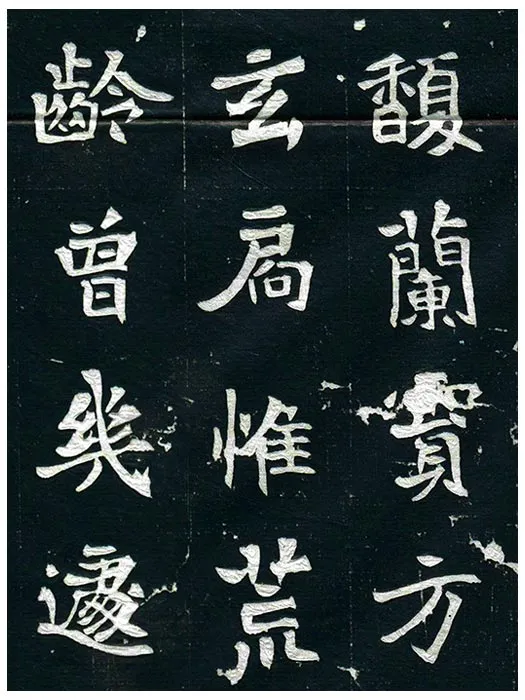 馥蘭方
玄扃惟荒
齡曾幾遽